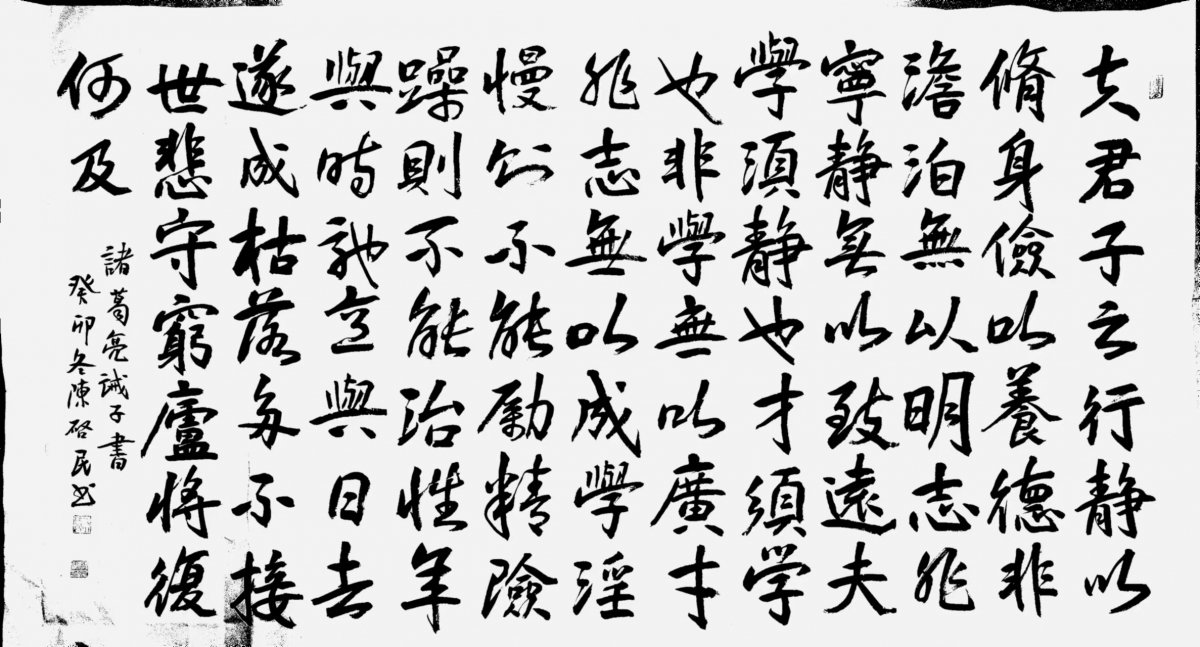 夫君子之行静以
脩身儉以養德非
澹泊無以明志非
寧静無以致遠夫
學須静也才須学
也非學無以廣才
非志無以成學淫
慢則不能励精險
躁則不能治性年
與時馳意與日去
遂成枯落多不接
世悲守窮廬將復
何及
諸葛亮誡子書
癸卯冬陳啓民书